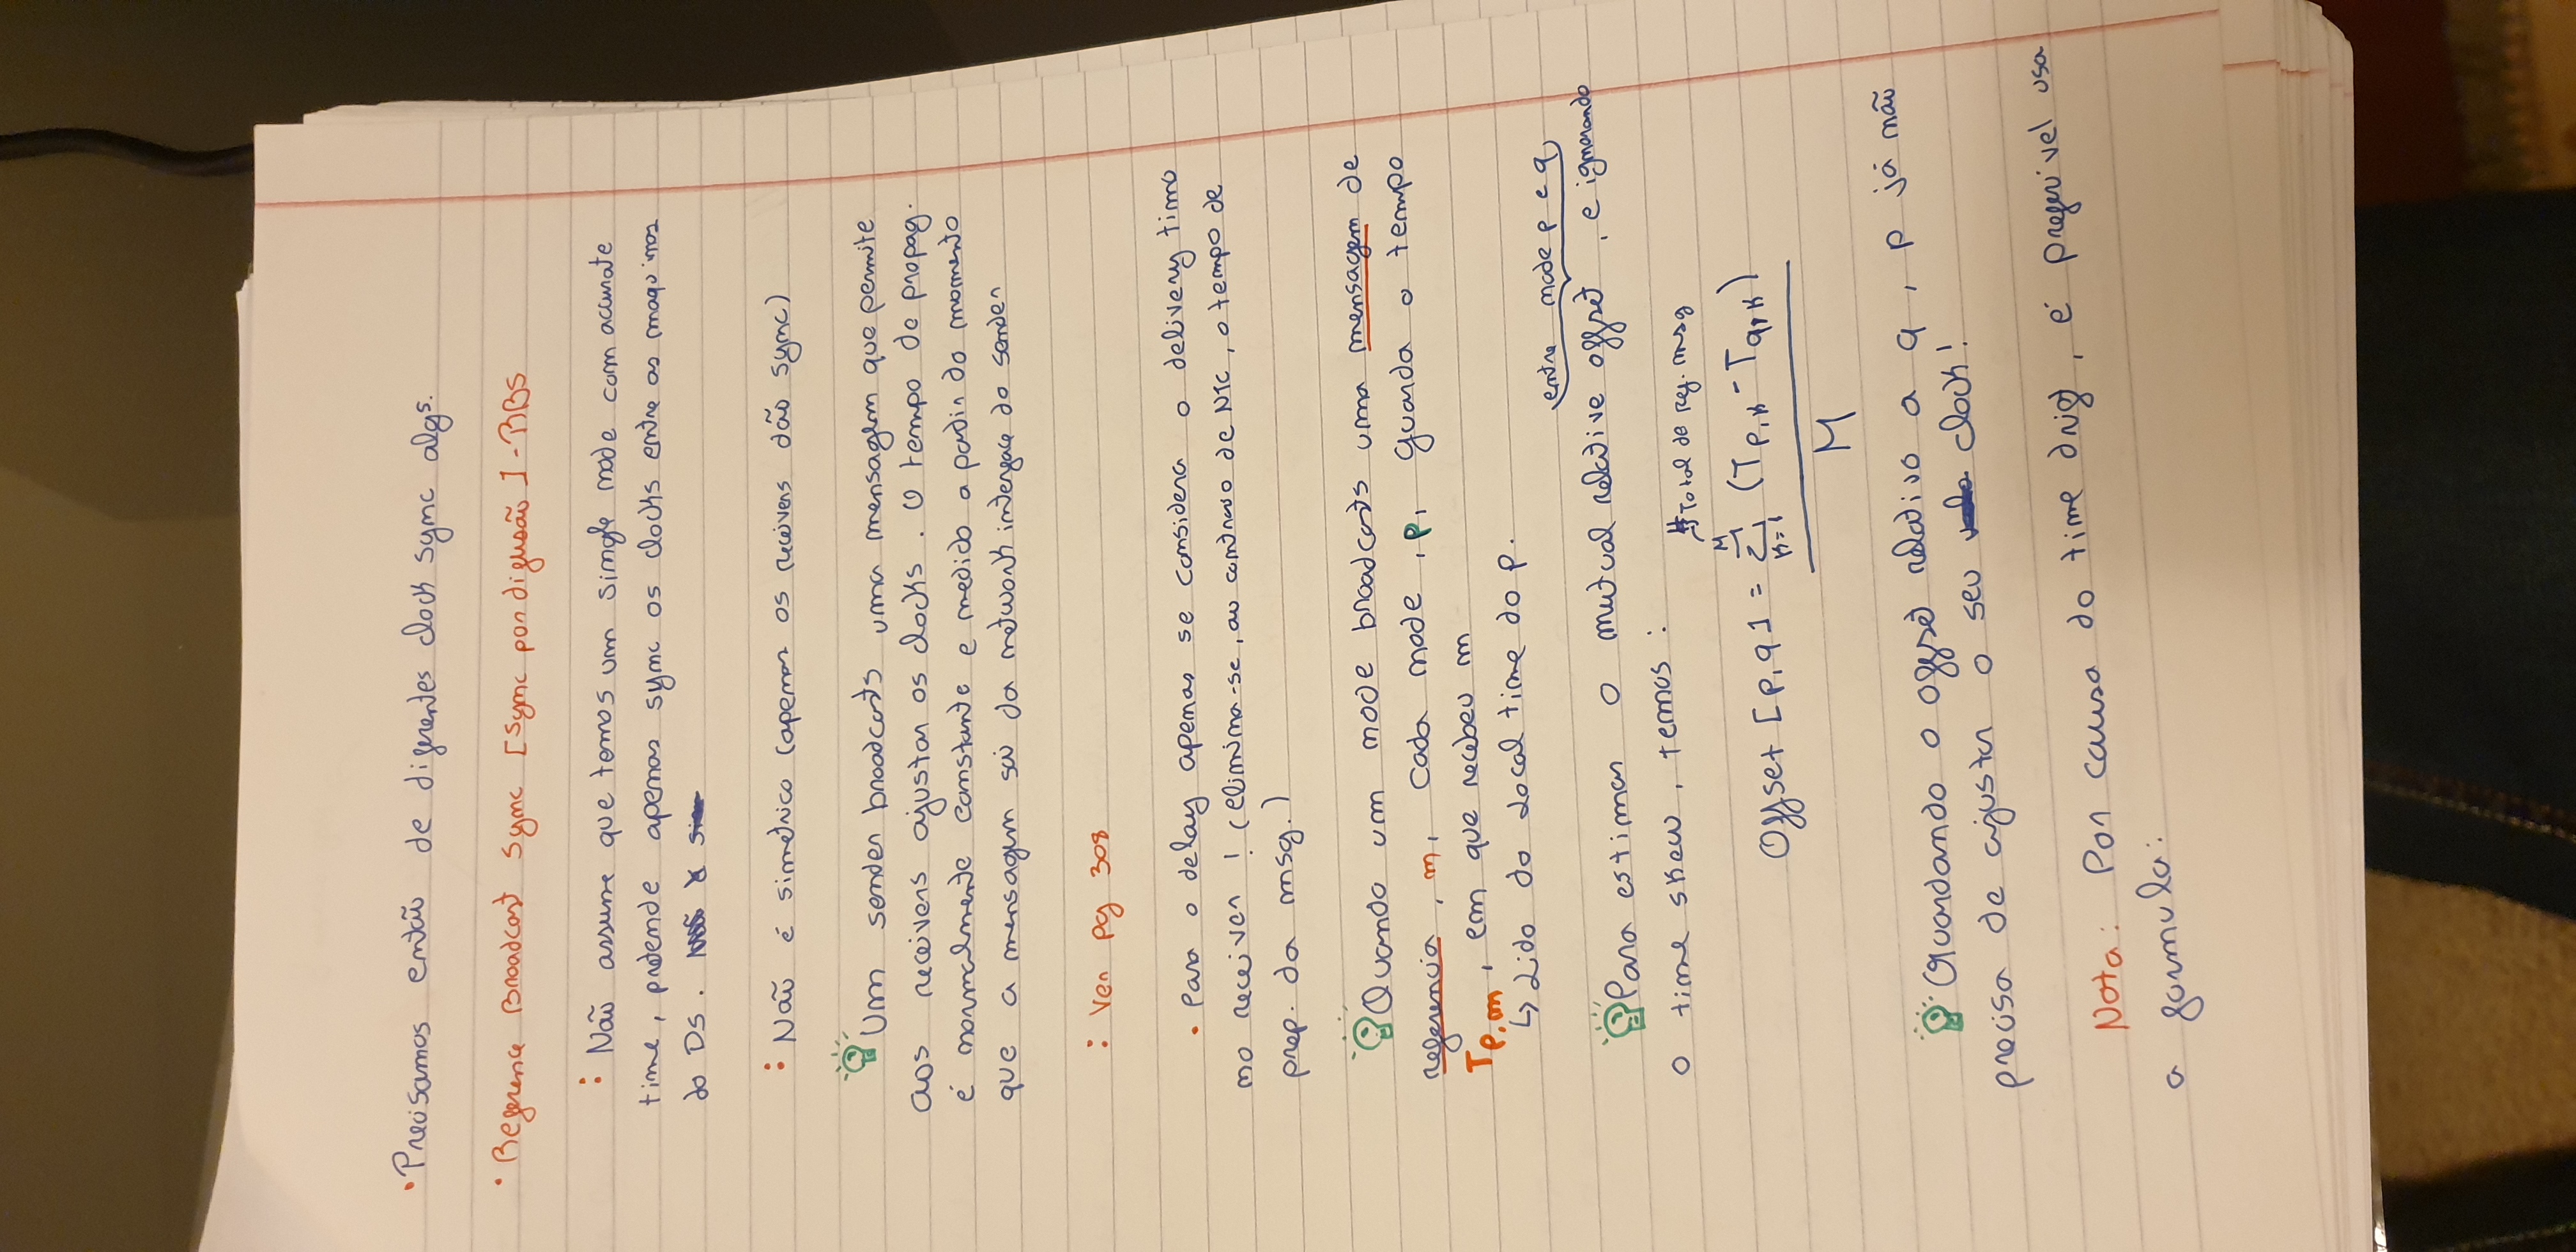 • Precisamos então de diferentes clock sync algs.
• Reference Broadcast Sync [Sync por difusão] - RBS
: Não assume que temos um single node com accurate
time, pretende apenas sync os clocks entre as maquinas
do DS.
: Não é simétrico (apenas os receivers dão sync)
Um sender broadcasts uma mensagem que permite
aos receivers ajustar os clocks. O tempo de propag.
é normalmente constante e medido a partir do momento
que a mensagem sai da network interface do sender
: Ver pg 308
• Para o delay apenas se considera o delivery time
no receiver! (elimina-se, ao contrario de NTC, o tempo de
prep. da msg.)
Quando um node broadcasts uma mensagem de
referencia, m, cada node, p, guarda o tempo
Tp,m, em que recebeu m
↳ Lido do Local time do p.
entre node p e q
Para estimar o mutual relative offset, e ignorando
o time skew, temos:
# Total de ref. msg
Offset [p,q] = M Σ k=1 (Tp,k - Tq,k)
M
Guardando o offset relativo a q, p já não
precisa de ajustar o seu clock!
Nota: Por causa do time drift, é preferivel usa
a formula: